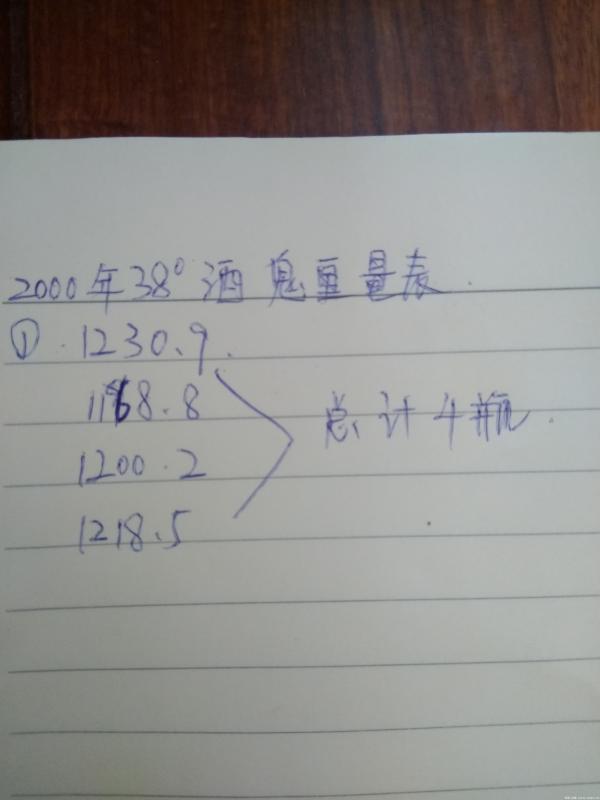 2000年38°酒鬼重量表.
① 1230.9.
1168.8
1200.2
1218.5
总计4瓶.